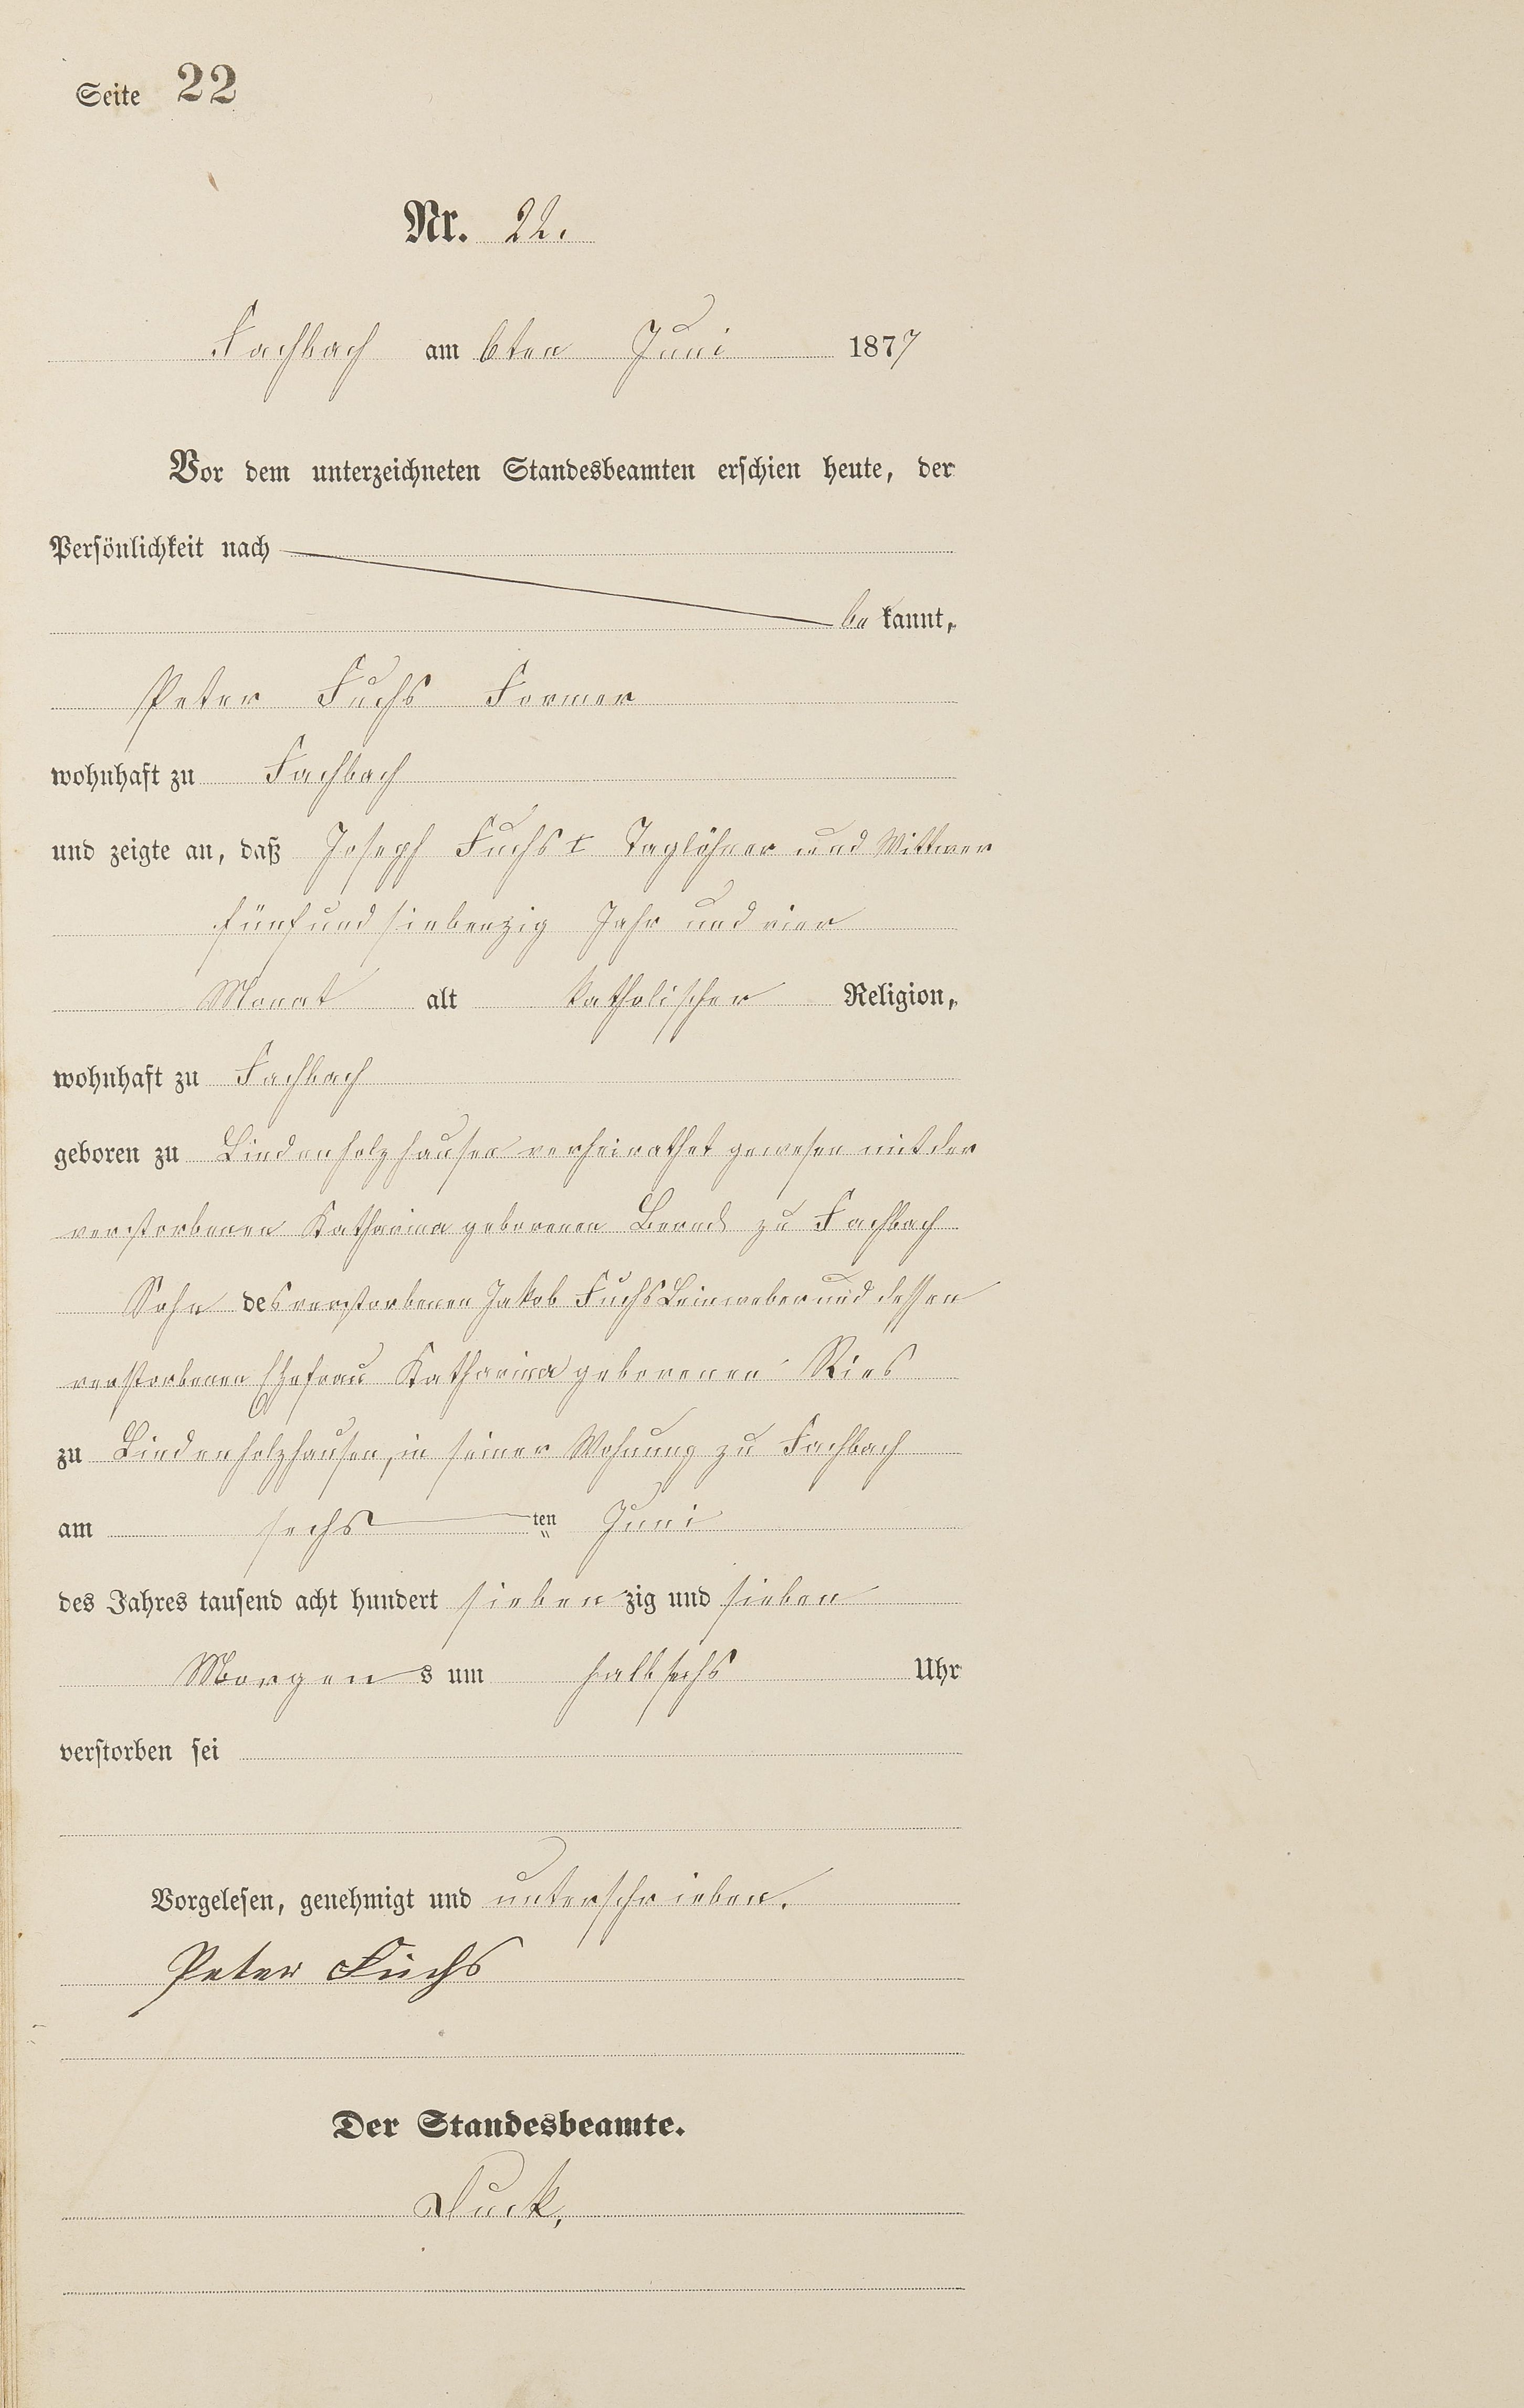 Seite 22
Nr. 22.
Fachbach am 6ten Juni 1877
Vor dem unterzeichneten Standesbeamten erschien heute, der
Persönlichkeit nach
bekannt,
Peter Fuchs Former
wohnhaft zu Fachbach
und zeigte an, daß Joseph Fuchs I Taglöhner und Wittwer
fünfundsiebenzig Jahr und vier
Monat alt katholischer Religion,
wohnhaft zu Fachbach
geboren zu Lindenholzhausen verheirathet gewesen mit der
verstorbenen Katharina geborenen Bernd zu Fachbach
Sohn des verstorbenen Jakob Fuchs Leinweber und dessen
verstorbenen Ehefrau Katharina geborenen Ries
zu Lindenholzhausen, in seiner Wohnung zu Fachbach
am sechsten Juni
des Jahres tausend acht hundert siebenzig und sieben
Morgens um halb sechs Uhr
verstorben sei
Vorgelesen, genehmigt und unterschrieben.
Peter Fuchs
Der Standesbeamte.
Duck.